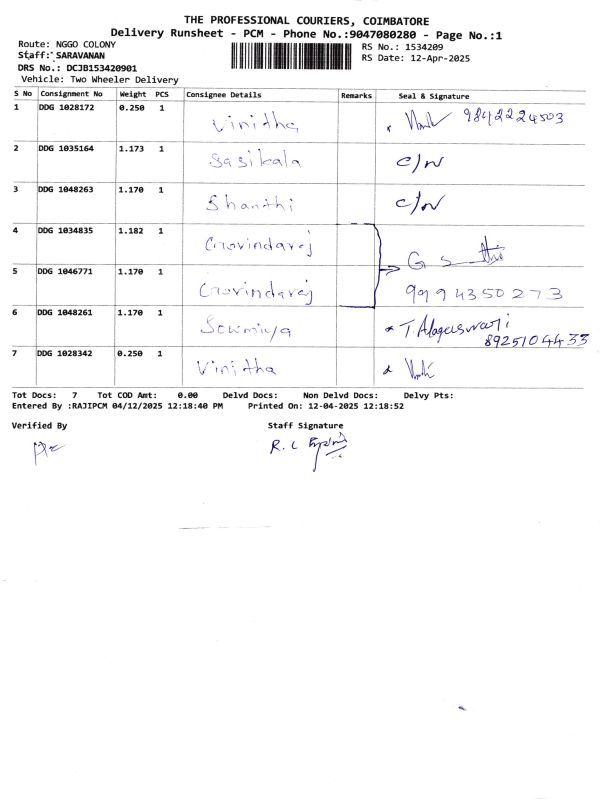 THE PROFESSIONAL COURIERS, COIMBATORE
Delivery Runsheet - PCM - Phone No.:9047080280 - Page No.:1
Route: NGGO COLONY RS No.: 1534209
Staff: SARAVANAN RS Date: 12-Apr-2025
DRS No.: DCJB153420901
Vehicle: Two Wheeler Delivery
S No Consignment No Weight PCS Consignee Details Remarks Seal & Signature
1 DDG 1028172 0.250 1 Vinitha 9842224503
2 DDG 1035164 1.173 1 Sasikala C/N
3 DDG 1048263 1.170 1 Shanthi C/N
4 DDG 1034835 1.182 1 Govindaraj G S
5 DDG 1046771 1.170 1 Govindaraj 9994350273
6 DDG 1048261 1.170 1 Sowmiya T. Alageswari
8925104433
7 DDG 1028342 0.250 1 Vinitha
Tot Docs: 7 Tot COD Amt: 0.00 Delvd Docs: Non Delvd Docs: Delvy Pts:
Entered By :RAJIPCM 04/12/2025 12:18:40 PM Printed On: 12-04-2025 12:18:52
Verified By Staff Signature
R. C